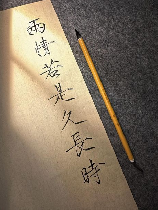 两情若是久長時